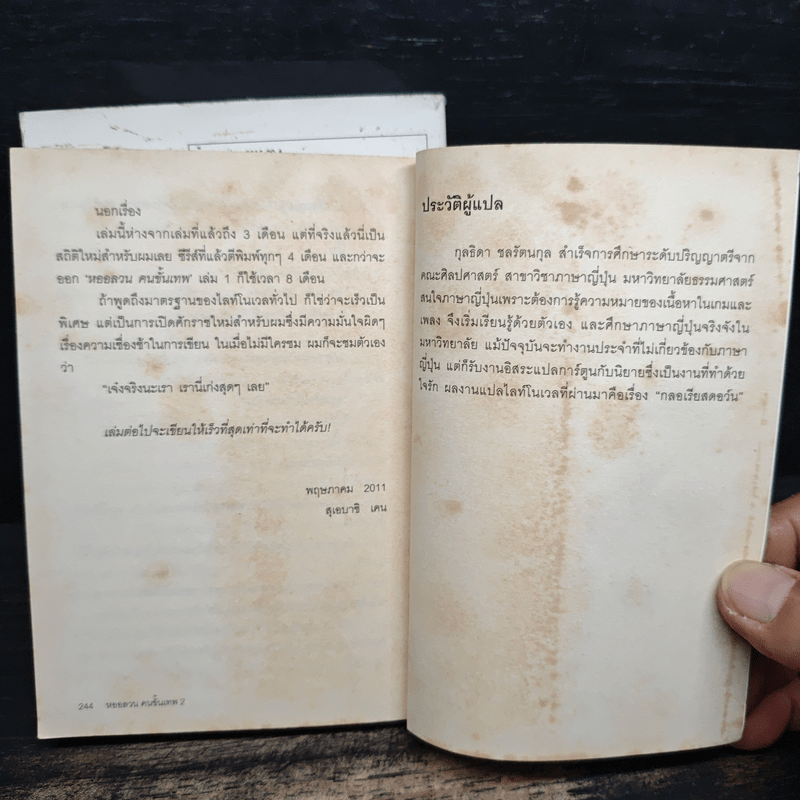 นอกเรื่อง
เล่มนี้ห่างจากเล่มที่แล้วถึง 3 เดือน แต่ที่จริงแล้วนี่เป็น
สถิติใหม่สำหรับผมเลย ซีรีส์ที่แล้วตีพิมพ์ทุกๆ 4 เดือน และกว่าจะ
ออก ‘หยอลวน คนขั้นเทพ’ เล่ม 1 ก็ใช้เวลา 8 เดือน
ถ้าพูดถึงมาตรฐานของไลท์โนเวลทั่วไป ก็ใช่ว่าจะเร็วเป็น
พิเศษ แต่เป็นการเปิดศักราชใหม่สำหรับผมซึ่งมีความมั่นใจผิดๆ
เรื่องความเชื่องช้าในการเขียน ในเมื่อไม่มีใครชม ผมก็จะชมตัวเอง
ว่า
“เจ๋งจริงนะเรา เรานี่เก่งสุดๆ เลย”
เล่มต่อไปจะเขียนให้เร็วที่สุดเท่าที่จะทำได้ครับ!
พฤษภาคม 2011
สุเอบาชิ เคน
244 หยอลวน คนขั้นเทพ 2
ประวัติผู้แปล
กุลธิดา ชลรัตนกุล สำเร็จการศึกษาระดับปริญญาตรีจาก
คณะศิลปศาสตร์ สาขาวิชาภาษาญี่ปุ่น มหาวิทยาลัยธรรมศาสตร์
สนใจภาษาญี่ปุ่นเพราะต้องการรู้ความหมายของเนื้อหาในเกมและ
เพลง จึงเริ่มเรียนรู้ด้วยตัวเอง และศึกษาภาษาญี่ปุ่นจริงจังใน
มหาวิทยาลัย แม้ปัจจุบันจะทำงานประจำที่ไม่เกี่ยวข้องกับภาษา
ญี่ปุ่น แต่ก็รับงานอิสระแปลการ์ตูนกับนิยายซึ่งเป็นงานที่ทำด้วย
ใจรัก ผลงานแปลไลท์โนเวลที่ผ่านมาคือเรื่อง “กลอเรียสดอว์น”